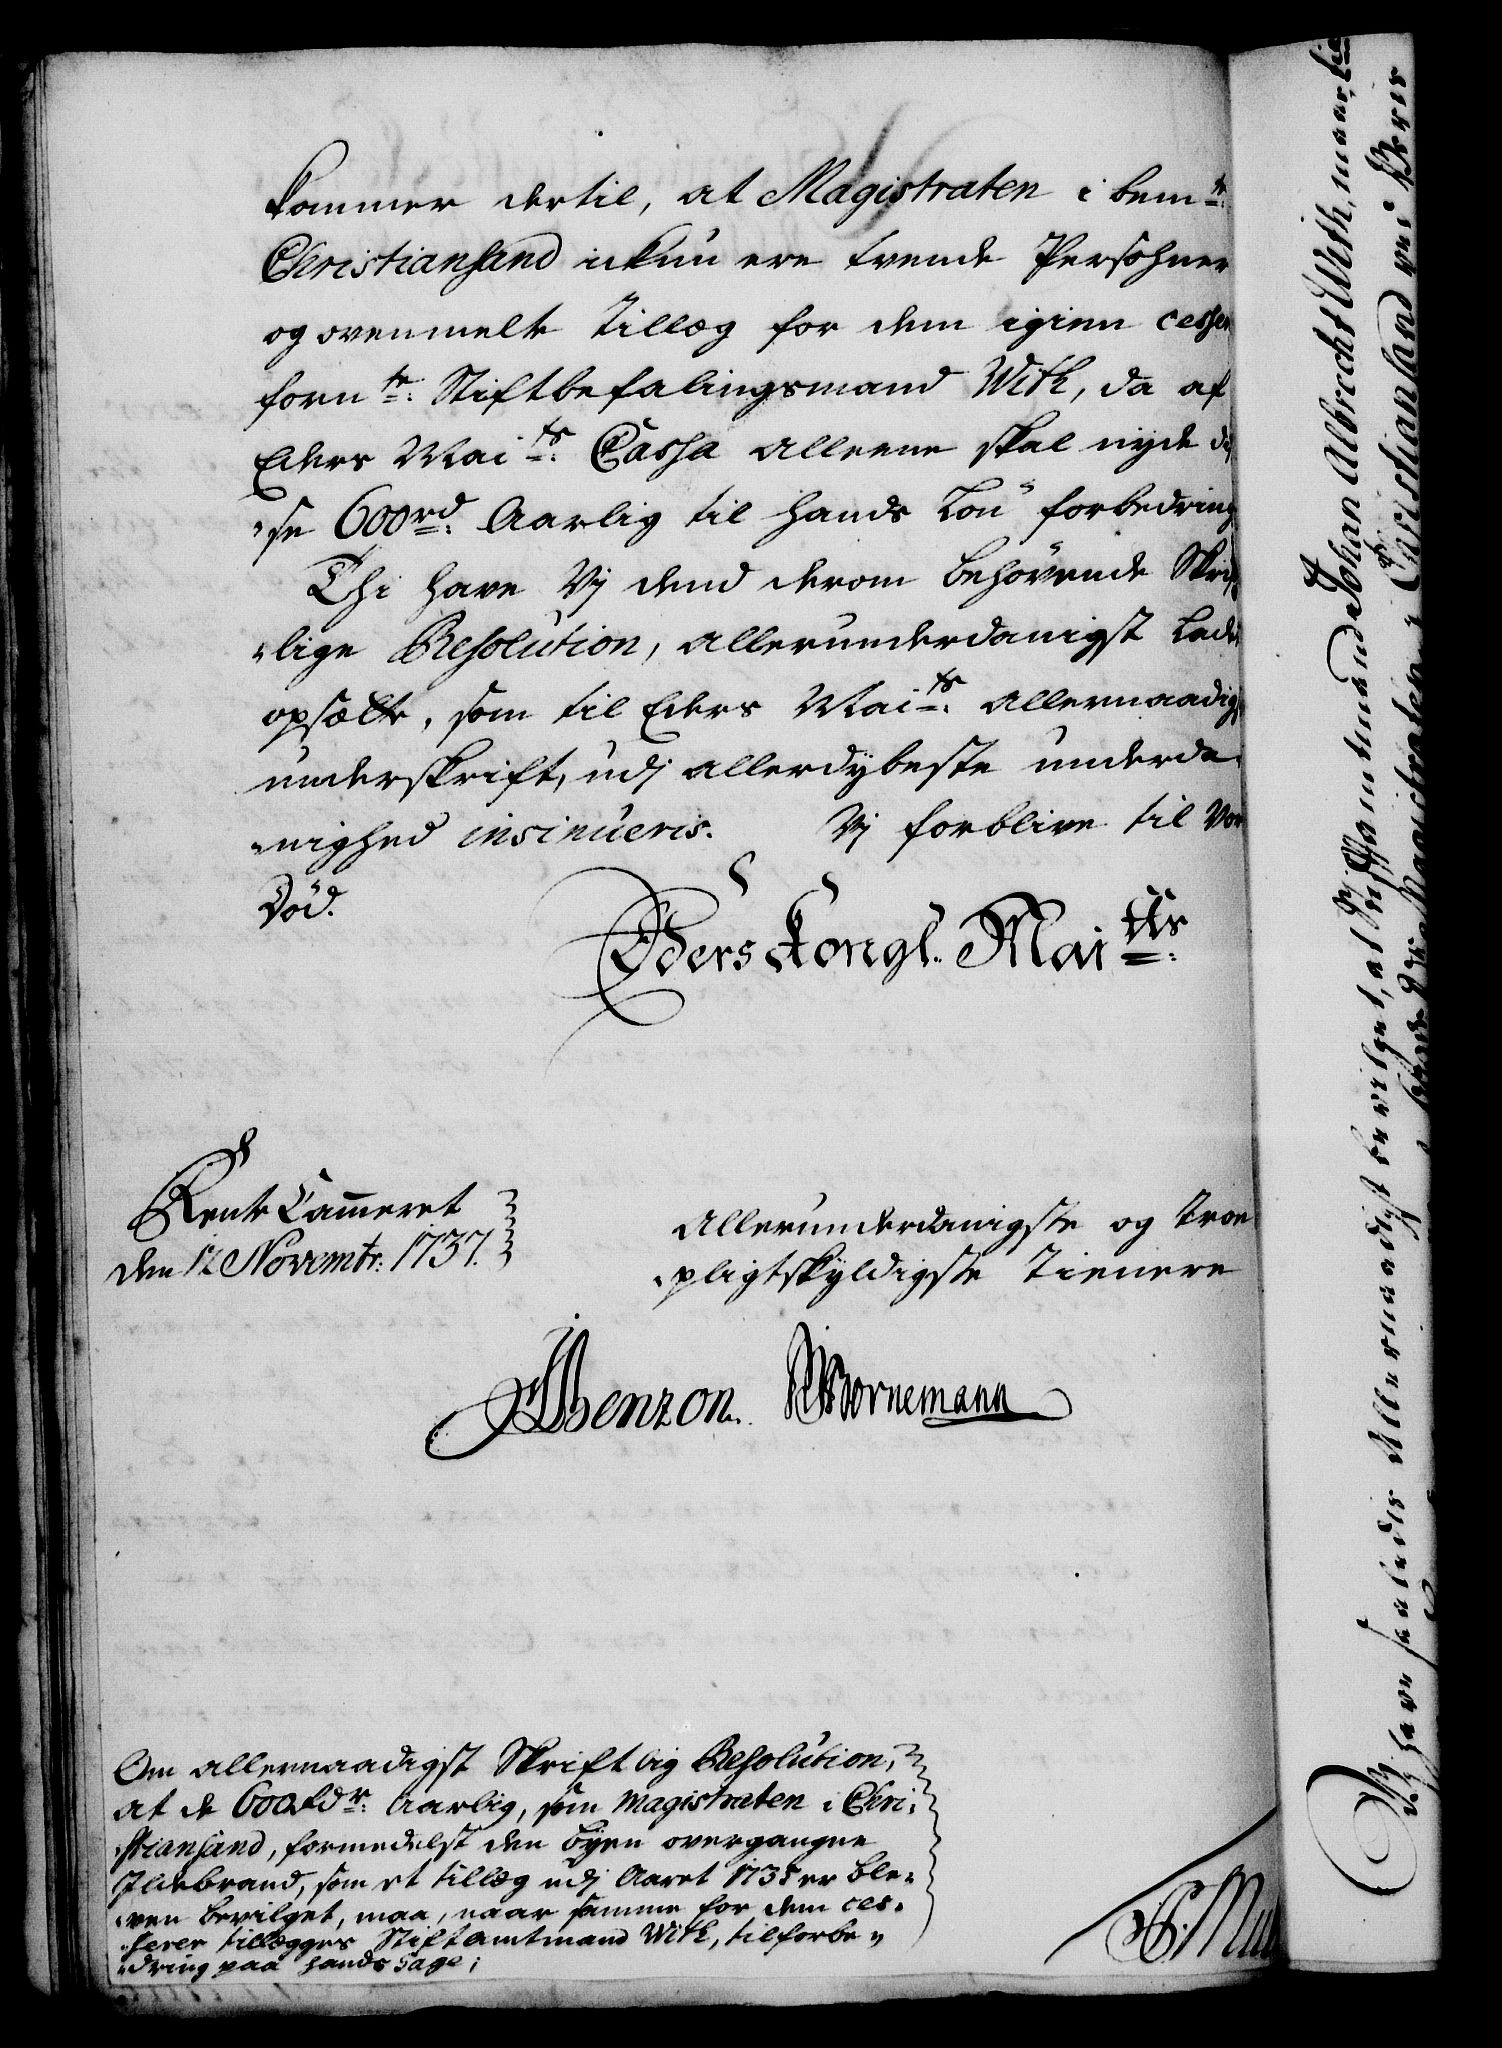 kommer dertil, at Magistraten i bemte:
Christiansand ickun ere trende Persohner
og ovenmelte Tillæg for dem igien
fornte: Stiftbefalingsmand With, da af
Eders Maits: Cassa alleene skal nyde
se 600rd: Aarlig til hands Lön forbedring
Thi have Vj dend derom behövende
lige Resolution, allerunderdanigst
opsætte, som til Eders Maits: allernaadig
underskrift, udj allerdybeste underda
nighed insinueris. Vj forblive til Vor
Död.
Eders Kongl. Maitts:
Rente Cammeret
den 12 Novembr: 1737.
Allerunderdanigste og troe
pligtskyldigste Tienere
Benzon. Bornemann
Om allernaadigst Skriftlig Resolution,
at de 600 Rdr: Aarlig, som Magistraten i Chri
stiansand, formedelst den Byen overgangne
Ildebrand, som et tillæg udj Aaret 1735 er ble
ven bevilget, maa, naar samme for dem ces
serer tillægges Stiftamtmand With, til forbe
dring paa hands Gage;
Vj have saaledes Allernaadigst bevilget, at Stiftamtmand Johan Albrecht With, maa,
Magistraten i Christiansand ved